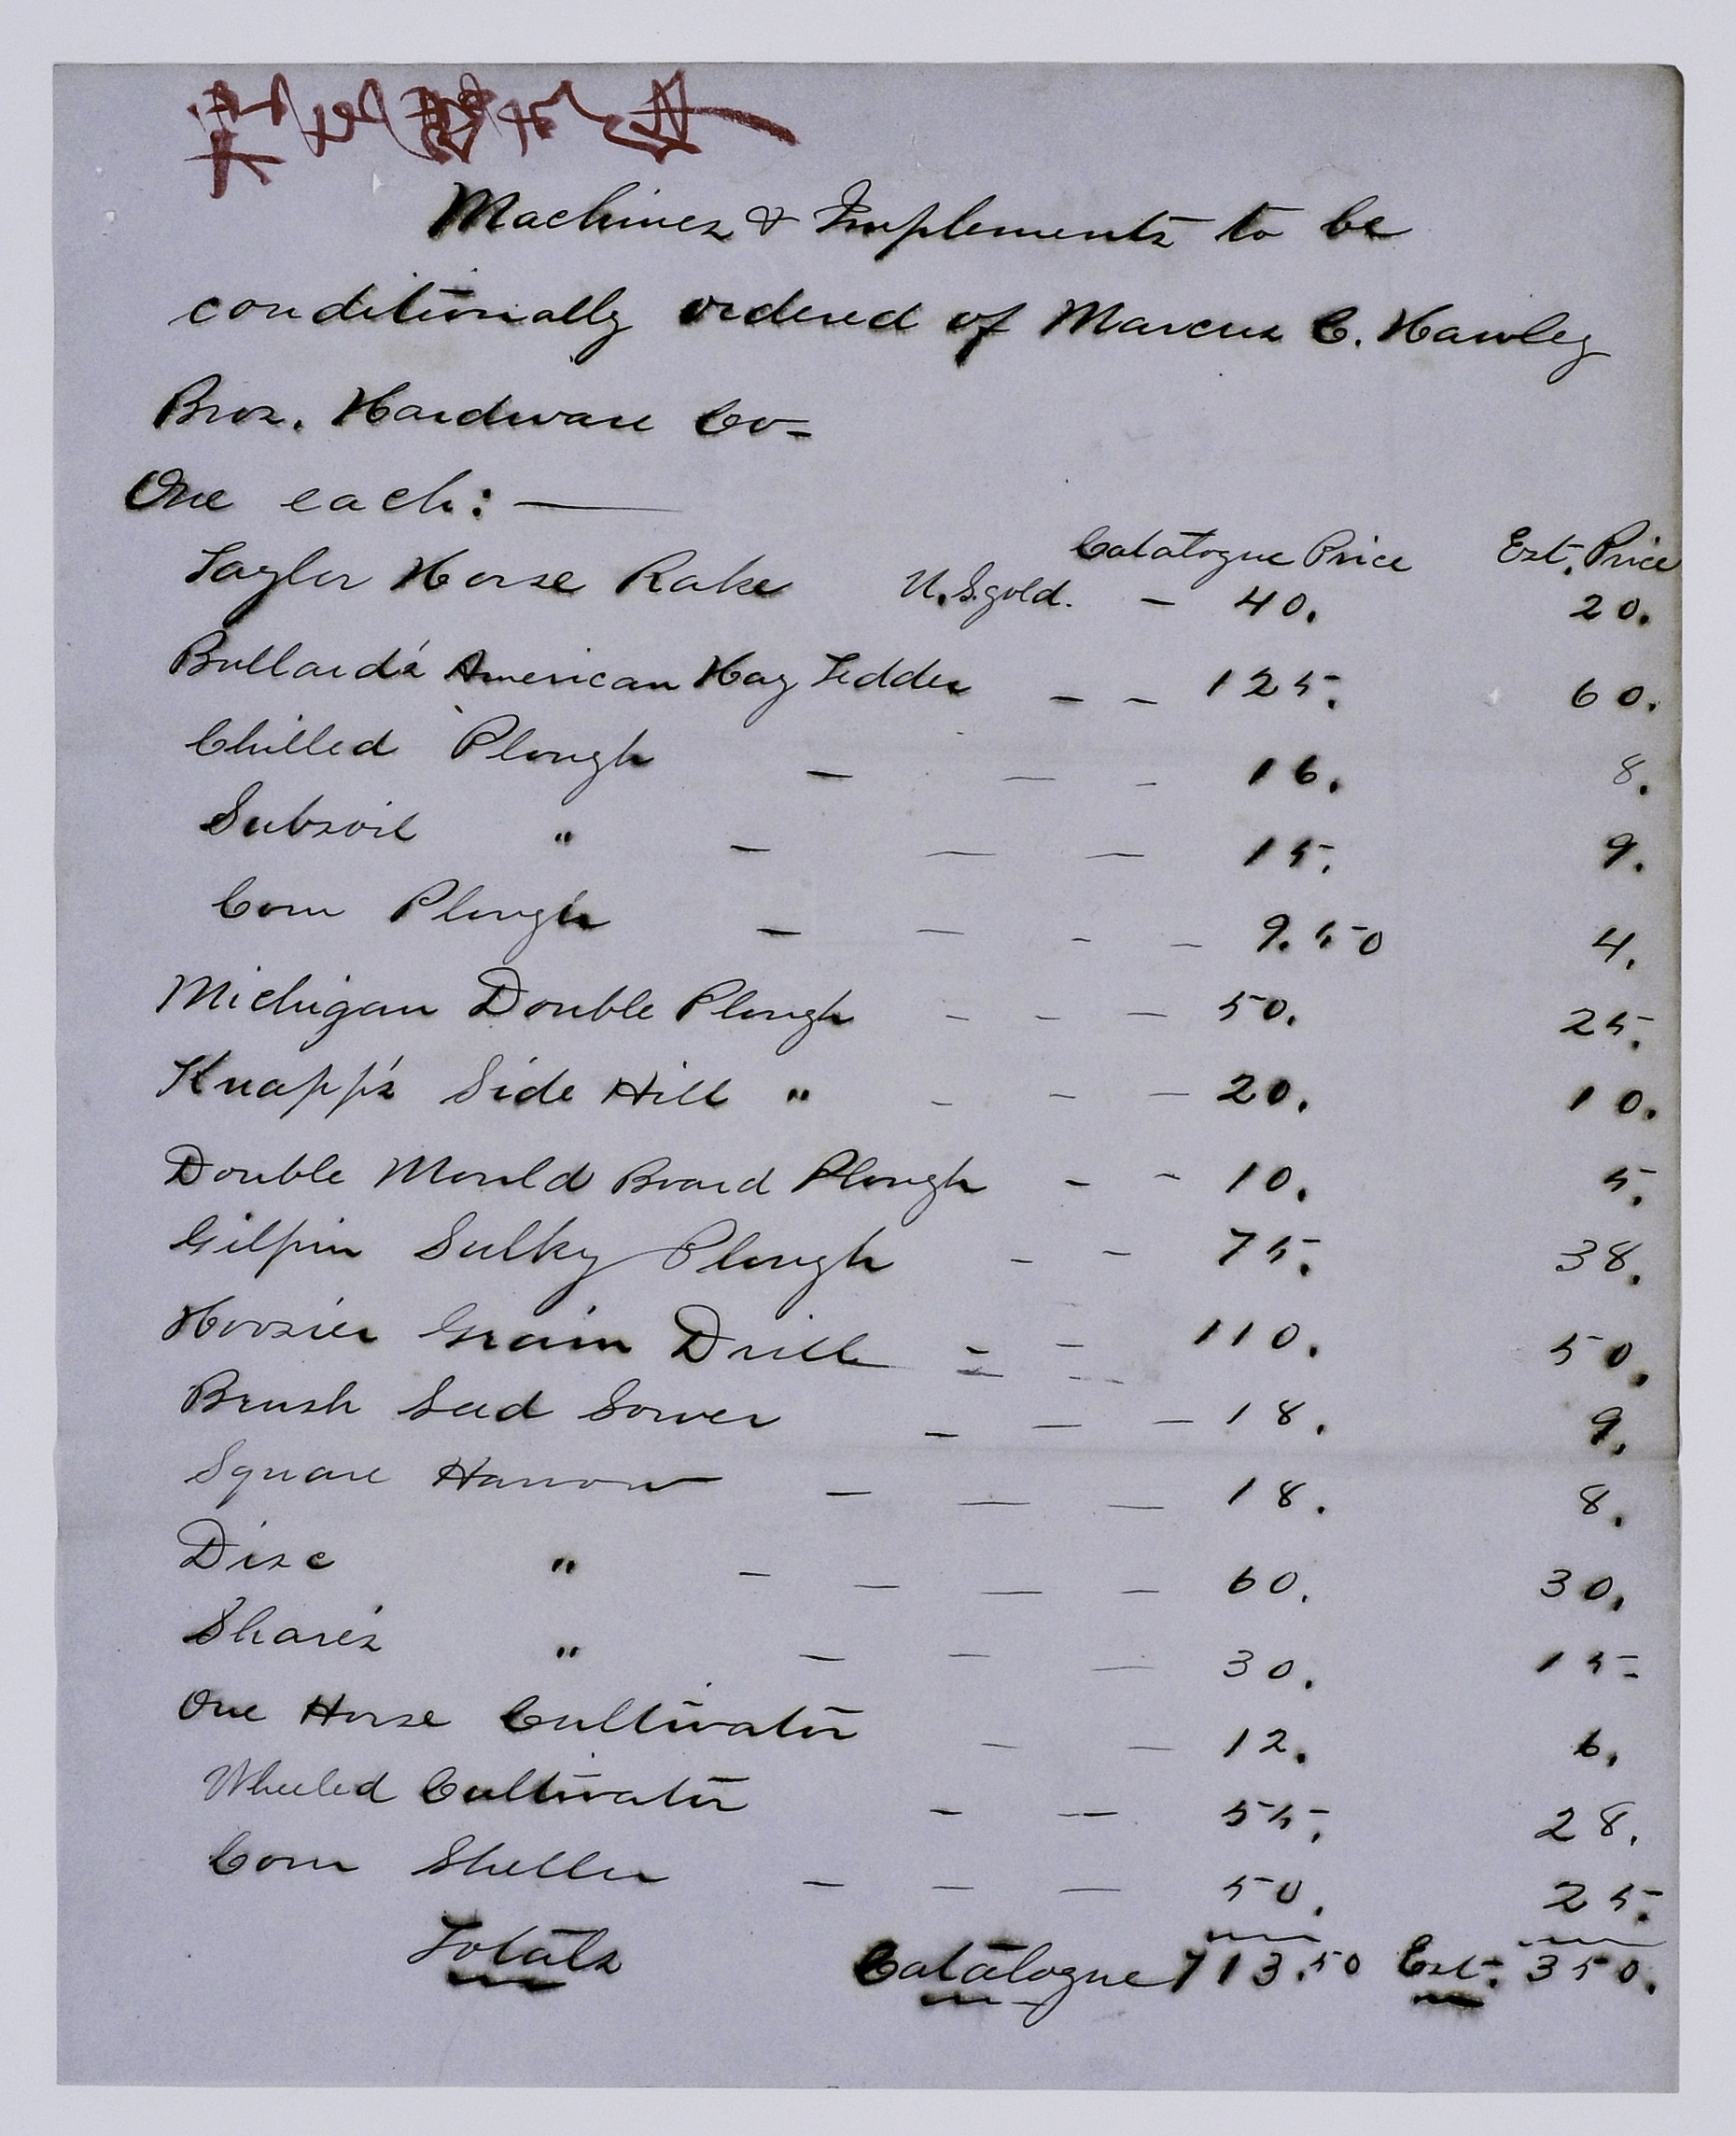 Machines & Implements to be
conditionally ordered of Marcus C. Hawley
Bros. Hardware Co-
One each: —
Catalogue Price Est. Price
Taylor Horse Rake U.S. gold. - 40. 20.
Bullard's American Hay Tedder - - 125. 60.
Chilled Plough - - - 16. 8.
Subsoil " - - - 15. 9.
Corn Plough - - - - 9.50 4.
Michigan Double Plough - - - 50. 25.
Knapp's Side Hill " - - - 20. 10.
Double Mould Board Plough - - 10. 5.
Gilpin Sulky Plough - - 75. 38.
Hoosier Grain Drill - - 110. 50.
Brush Seed Sower - - - 18. 9.
Square Harrow - - - 18. 8.
Disc " - - - - 60. 30.
Share's " - - - 30. 15-
One Horse Cultivator - - 12. 6.
Wheeled Cultivator - - 55. 28.
Corn Sheller - - - 50. 25.
Totals Catalogue 713.50 Est. 350.